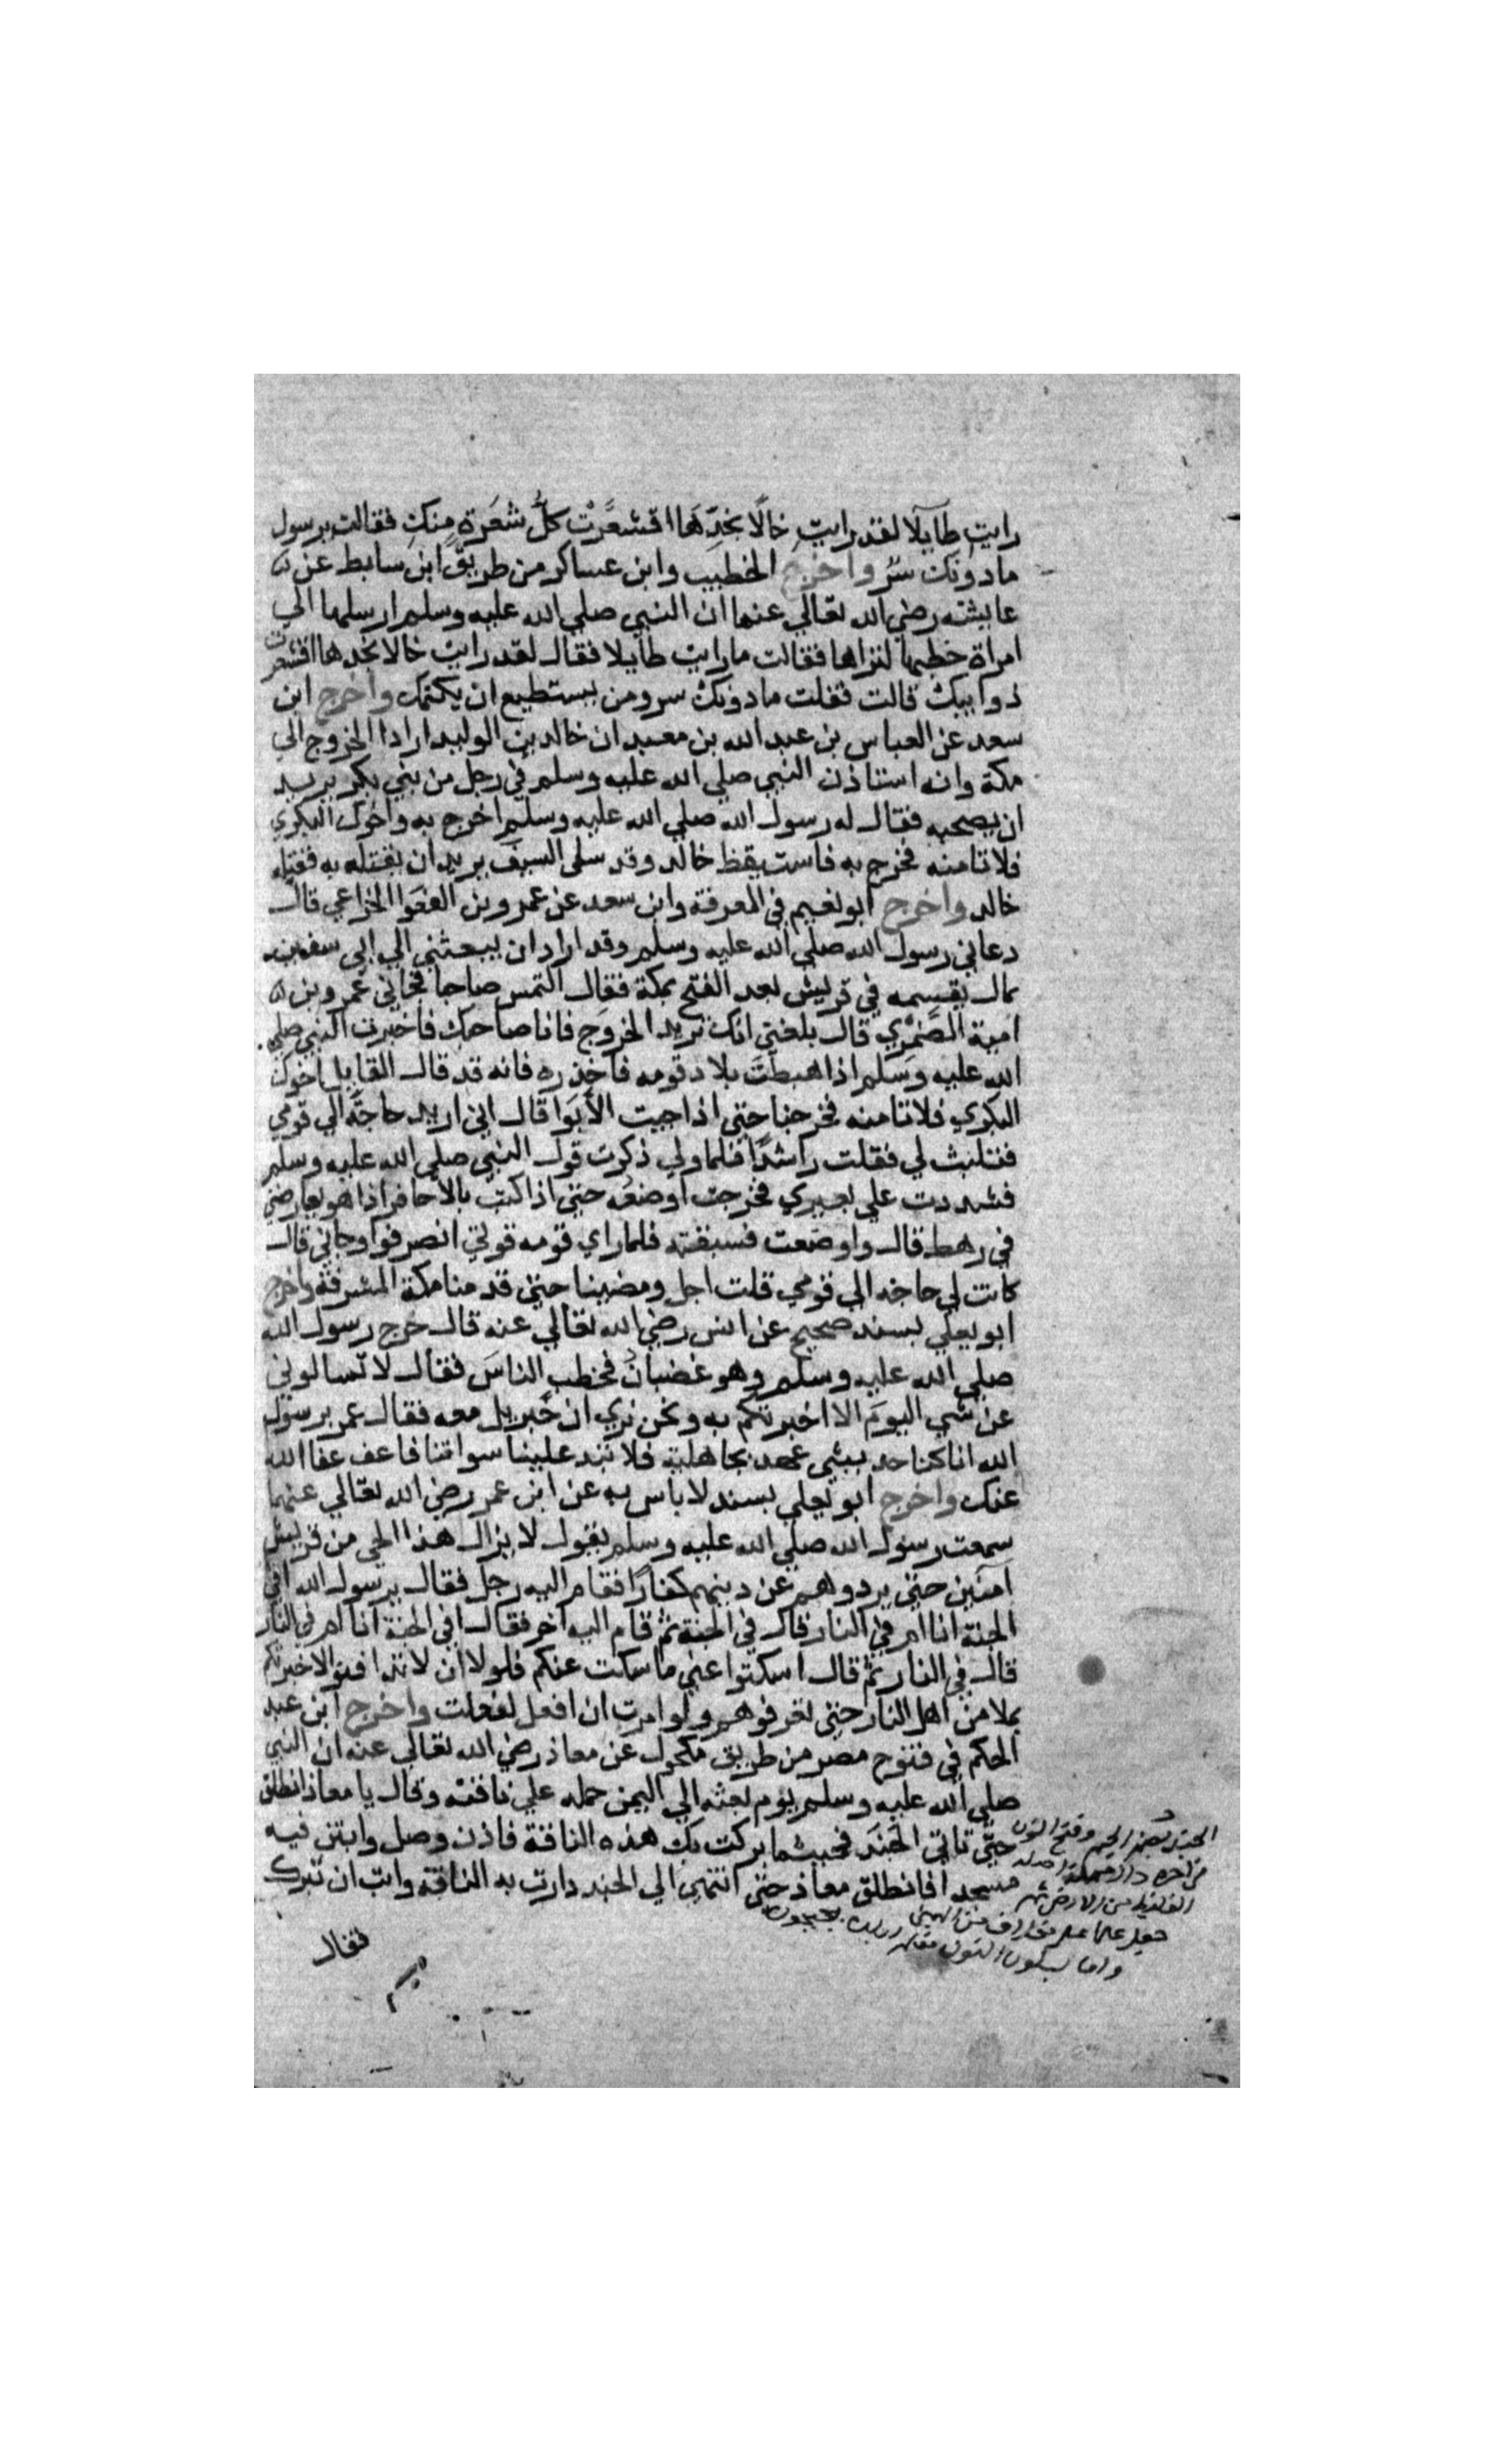 رايت طايلا لقد رايت خالًا بخدِّها اقشعَرَّت كلُّ شعَرة منكِ فقالت يرسول
ما دونك سرّ واخرج الخطيب وابن عساكر من طريق ابن سابط عن
عايشه رضي الله تعالي عنها ان النبي صلي الله عليه وسلم ارسلها الي
امراة خطبها لنزاها فقالت ما رايت طايلا فقال لقد رايت خالا بخدها اقشعرت
ذوايبك قالت فقلت ما دونك سر ومن يستطيع ان يكتمك واخرج ابن
سعد عن العباس بن عبد الله بن معبد ان خالد بن الوليد اراد الخروج الي
مكة وانه استاذن النبي صلي الله عليه وسلم في رجل من بني بكر يريد
ان يصحبه فقال له رسول الله صلي الله عليه وسلم اخرج به واخوك البكري
فلا تامنه فخرج به فاستيقظ خالد وقد سل السيف يريد ان يقتله به فقتله
خالد واخرج ابو نعيم في المعرفة وابن سعد عن عمرو بن الفغوا الخزاعي قال
دعاني رسول الله صلي الله عليه وسلم وقد اراد ان يبعثني الي ابي سفين
بمال يقسمه في قريش بعد الفتح بمكة فقال التمس صاحبا فجاني عمرو بن
امية الضَّمْري قال بلغني انك تريد الخروج فانا صاحبك فاخبرت النبي صلي
الله عليه وسلم اذا هبطتَ بلاد قومه فاحذره فانه قد قال القايل اخوك
البكري فلا تامنه فخرجنا حتي اذا جيت الأبوَا قال اني اريد حاجة الي قومي
فتلبث لي فقلت راشدًا فلما ولي ذكرت قول النبي صلي الله عليه وسلم
فشددت علي بعيري فخرجت اوضعُه حتي اذا كنت بالاحافر اذا هو يعارضني
في رهط قال واوضعت فسبقته فلما راي قومه قوتي انصرفوا وجاني قال
كانت لي حاجه الي قومي قلت اجل ومضينا حتي قدمنا مكة المشرفة واخرج
ابو يعلي بسند صحيح عن انس رضي الله تعالي عنه قال خرج رسول الله
صلي الله عليه وسلم وهو غضبانُ فخطب الناسَ فقال لا تسالوني
عن شي اليومَ الا اخبرتكم به ونحن نري ان جبريل معه فقال عمر يرسول
الله انا كنا حديثي عهد بجاهلية فلا تبد علينا سواتنا فاعف عفا الله
عنك واخرج ابو يعلي بسند لا باس به عن ابن عمر رضي الله تعالي عنهما
سمعت رسول الله صلي الله عليه وسلم يقول لا يزال هذا الحي من قريش
آمنين حتي يردوهم عن دينهم كفارًا فقام اليه رجل فقال يرسول الله افي
الجنة انا ام في النار قال في الجنة ثم قام اليه آخر فقال افي الجنة انا ام في النار
قال في النار ثم قال اسكتوا عني ما سكت عنكم فلولا ان لا تدافنوا لاخبرتكم
بملا من اهل النار حتي تعرفوهم ولو امرت ان افعل لفعلت واخرج ابن عبد
الحكم في فتوح مصر من طريق مكحول عن معاذ رضي الله تعالي عنه ان النبي
صلي الله عليه وسلم يوم بعثه الي اليمن حمله علي ناقته وقال يا معاذ انطلق
حتّي تاتي الجَنَد فحيثما بركت بك هذه الناقة فاذن وصل وابتن فيه
مسجدا فانطلق معاذ حتي انتهي الي الجند دارت به الناقة وابت ان تبرك
فقال
الجند بضم الجيم وفتح النون
في اخره دال مهملة اصله
الغليظ من الارض ثم
جعل علما علي مخلاف من اليمن
واما بسكون النون